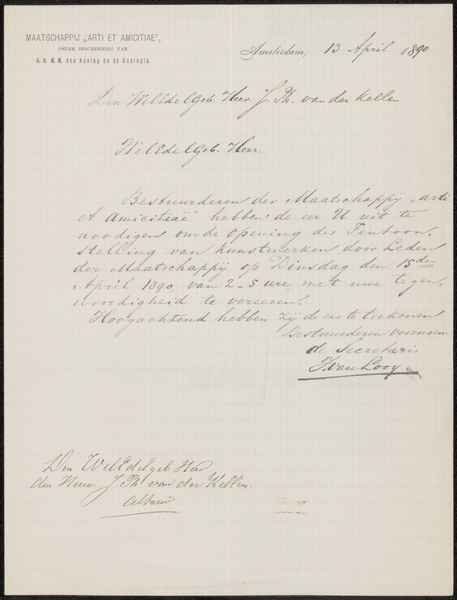 MAATSCHAPPIJ „ARTI ET AMICITIAE",
ONDER BESCHERMING VAN
H. H. M. M. den Koning en de Koningin.
Amsterdam, 13 April 1890
Den WelEdelGeb. Heer J. Ph. van der Kellen
WelEdelGeb. Heer.
Bestuurderen der Maatschappij „arti
et Amicitiae" hebben de eer U uit te
noodigen om de opening der Tentoon-
stelling van kunstwerken door Leden
der Maatschappij op Dinsdag den 15den
April 1890, van 2-5 ure, met uwe tegen-
woordigheid te vereeren.
Hoogachtend hebben zij de eer te teekenen
Bestuurderen voornoemd
de Secretaris
J. van Looy
Den WelEdelgeb Heer
den Heer J Ph van der Kellen.